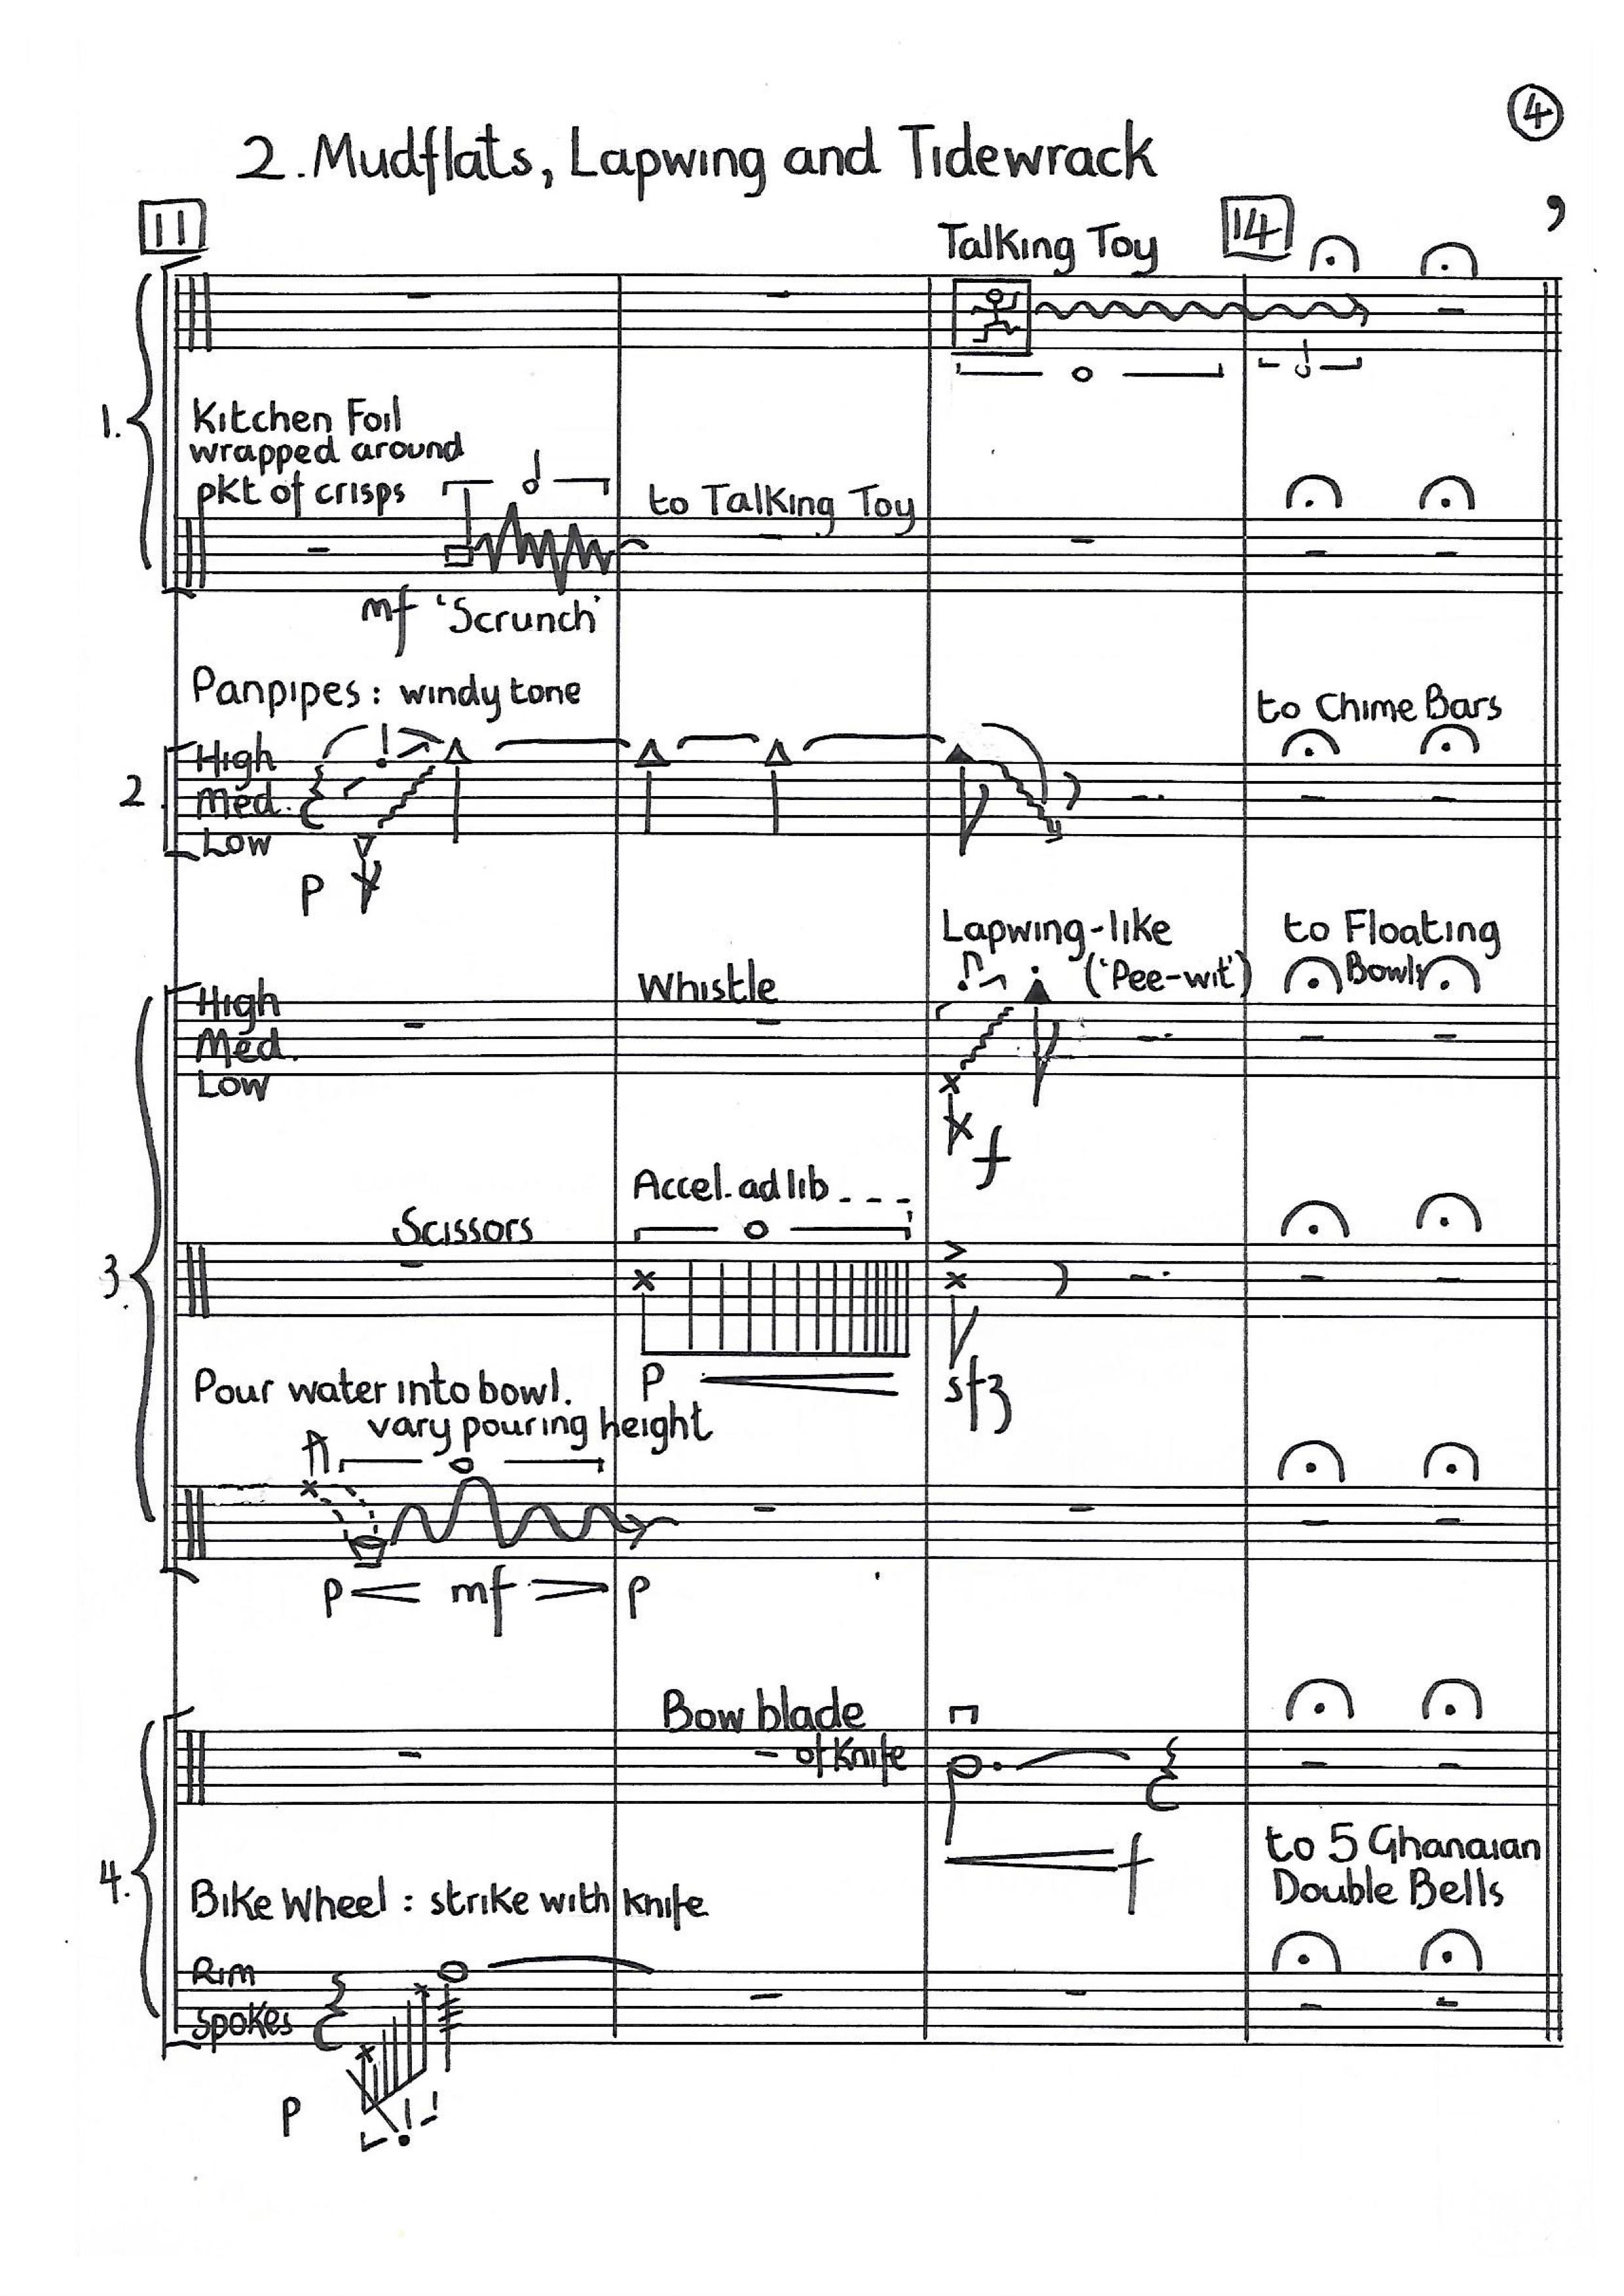 4
2. Mudflats, Lapwing and Tidewrack
11
Talking Toy
14
1.
Kitchen Foil
wrapped around
pkt of crisps
to Talking Toy
mf 'Scrunch'
Panpipes: windy tone
to Chime Bars
2
High
Med.
Low
p
Lapwing-like
('Pee-wit')
to Floating
Bowls
Whistle
High
Med.
Low
f
Accel. ad lib - - -
Scissors
3.
p
sfz
Pour water into bowl.
vary pouring height
p mf p
Bow blade
of Knife
f
4.
to 5 Ghanaian
Double Bells
Bike Wheel: strike with knife
Rim
Spokes
p